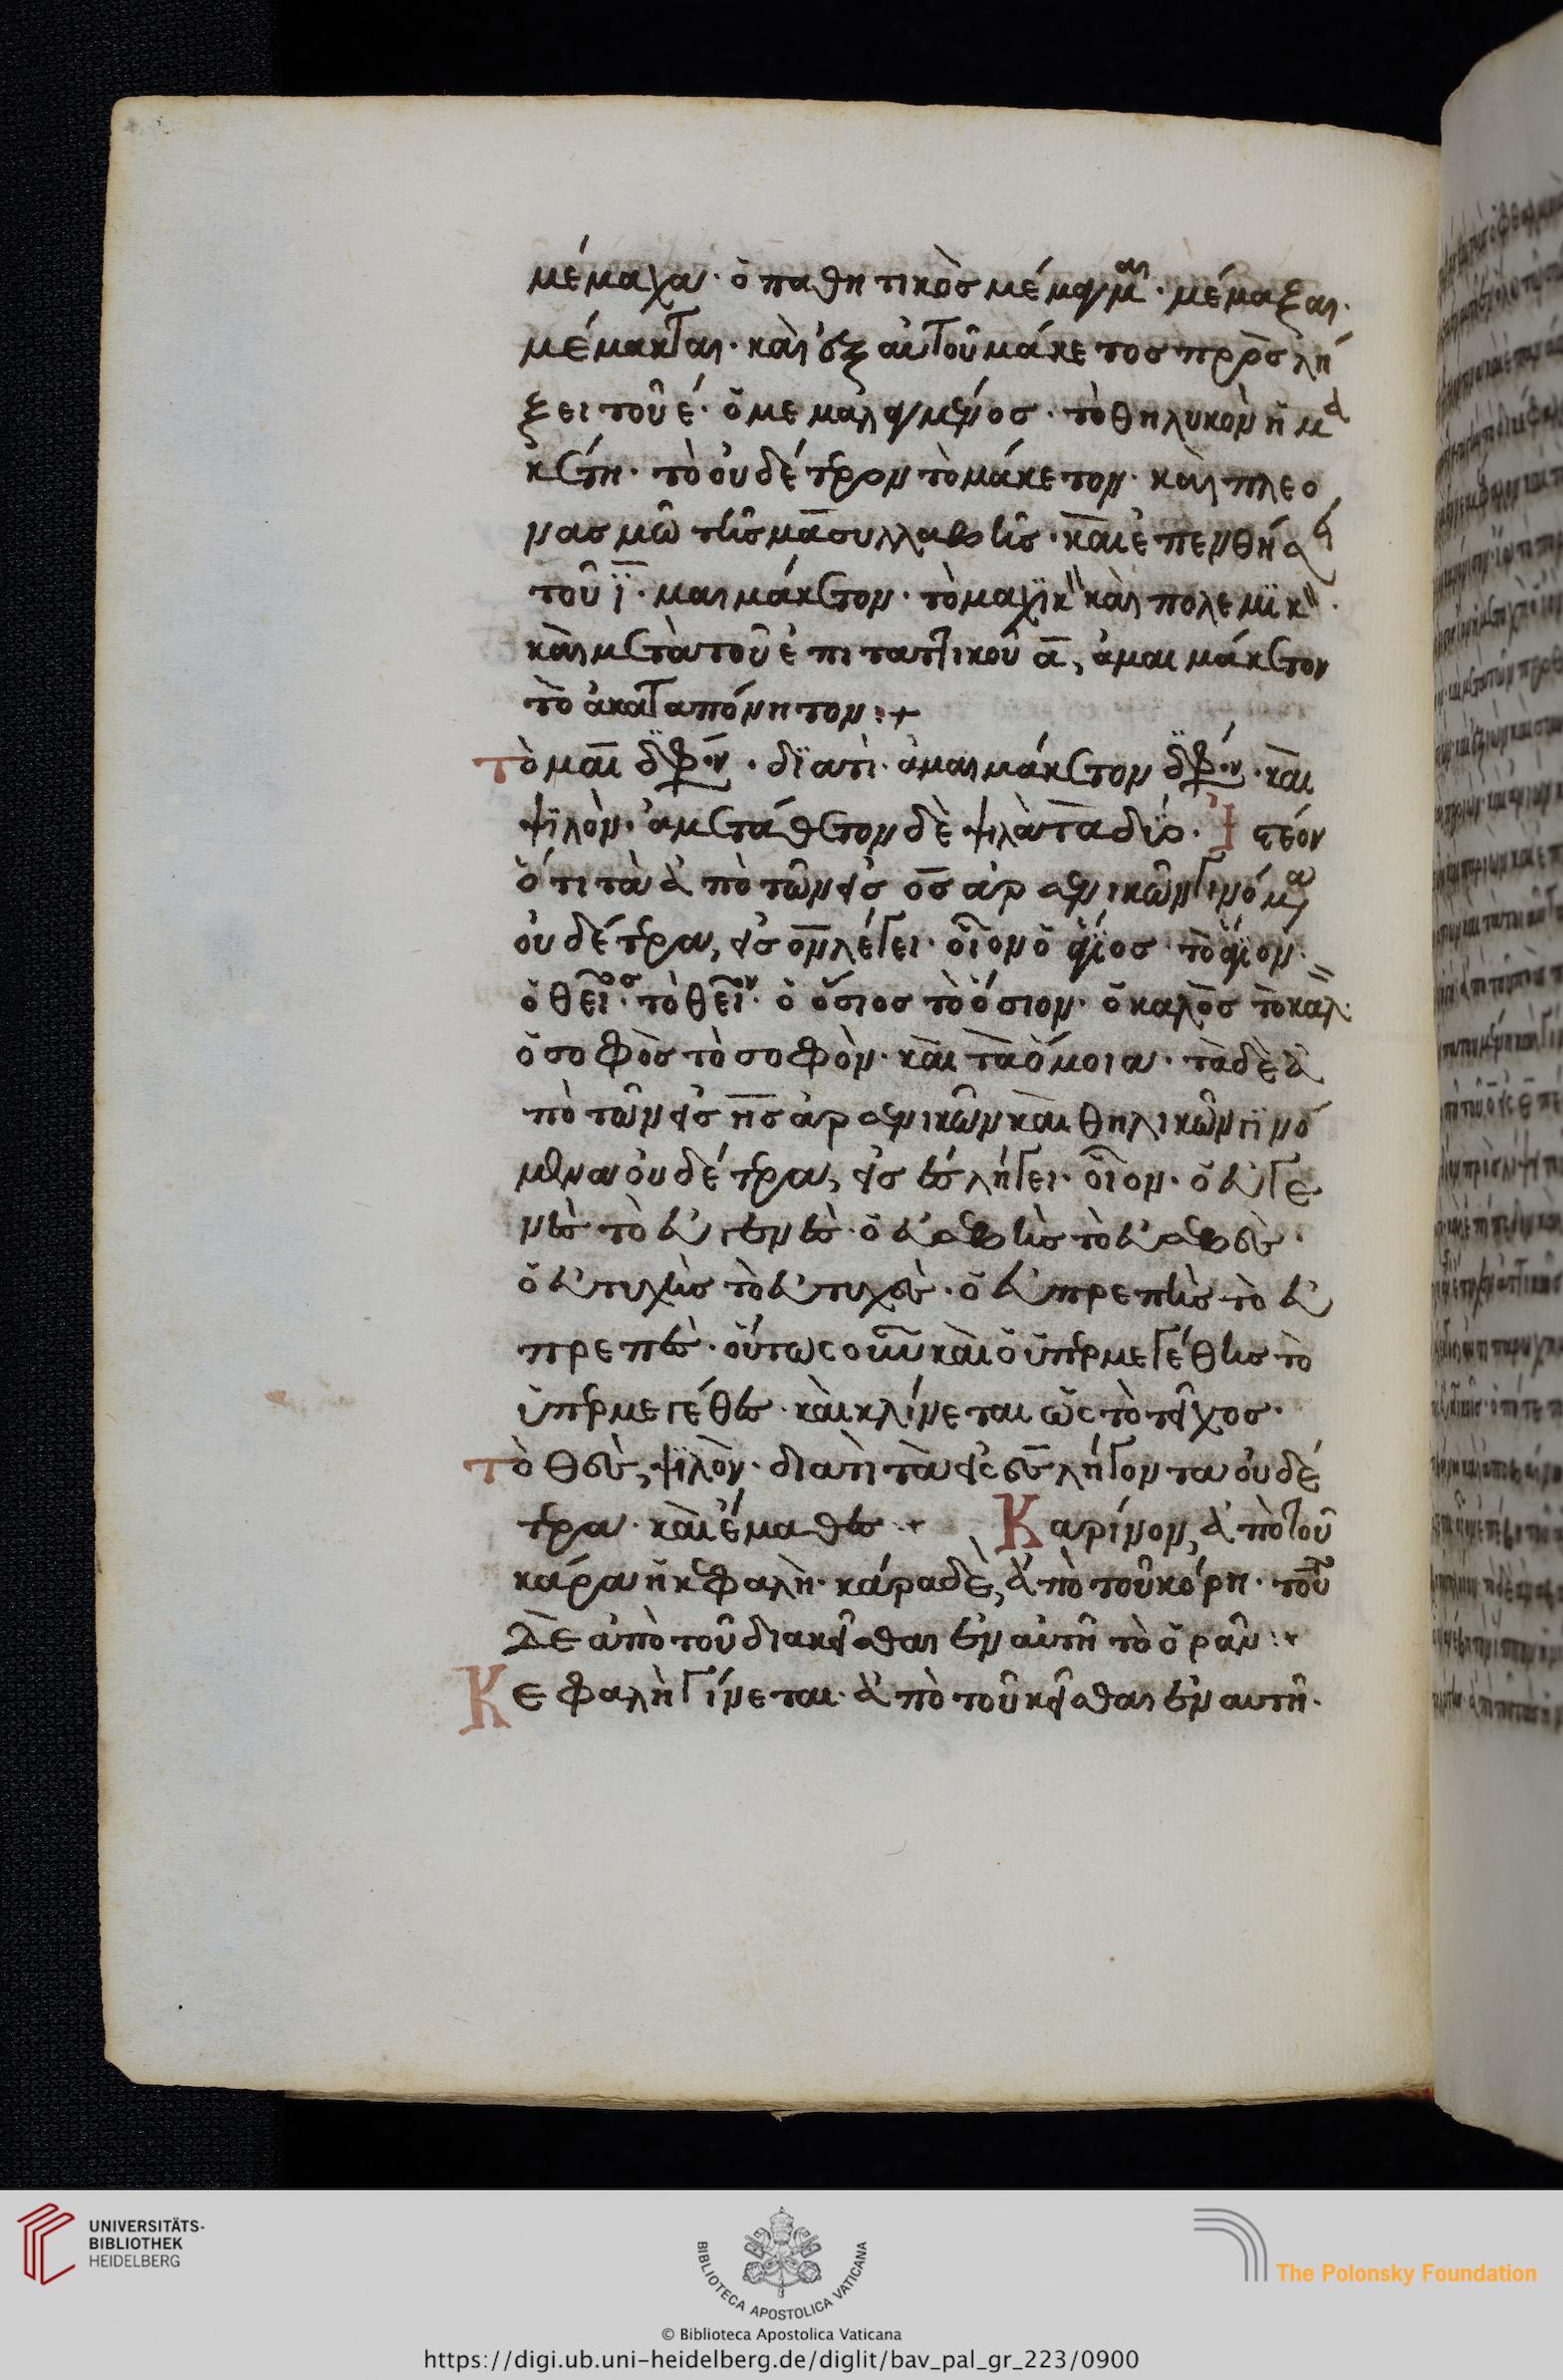 μέμαχα· ὁ παθητικὸς μέμαγμαι· μέμαξαι·
μέμακται· καὶ ἐξ αὐτοῦ μάκετος προσλή
ξει τοῦ ε· ὁ μεμαγμένος· τὸ θηλυκὸν ἡ μα
κέτη· τὸ οὐδέτερον τὸ μάκετον· καὶ πλεο
νασμῶ τῆς μα συλλαβῆς· καὶ ἐπενθέσει
τοῦ ϊ· μαιμάκετον· τὸ μαχϊκ" καὶ πολεμϊκ"·
καὶ μετὰ τοῦ ἐπιτατικοῦ α, ἀμαιμάκετον
τὸ ἀκαταπόνητον:+
τὸ μαι δϊφ·ν· δϊατί· ἀμαιμάκετον δϊφ·ν· καὶ
ψϊλόν· ἀμετάθετον δὲ ψιλὰ τὰ δύο· Ἰστέον
ὅτι τὰ ἀπὸ τῶν εἰς ος ἀρσενικῶν γινόμενα
οὐδέτερα, εἰς ον λέγει· οἷον ὁ ἅγϊος τὸ ἅγϊον·
ὁ θεῖος· τὸ θεῖον· ὁ ὅσιος τὸ ὅσιον· ὁ καλὸς τὸ καλ·
ὁ σοφὸς τὸ σοφὸν· καὶ τὰ ὅμοια· τὰ δὲ ἀ
πὸ τῶν εἰς ης ἀρσενικῶν καὶ θηλικῶν γινό
μενα οὐδέτερα, εἰς ες λήγει· οἷον· ὁ εὐγε
νὴς τὸ εὐγενὲς· ὁ εὐσεβὴς τὸ εὐσεβὲς·
ὁ εὐτυχὴς τὸ εὐτυχὲς· ὁ εὐπρεπὴς τὸ εὐ
πρεπὲς· οὕτως οὖν καὶ ὁ ὑπερμεγέθης τὸ
ὑπερμεγέθες· καὶ κλίνεται ὡς τὸ τεῖχος·
τὸ θες, ψϊλὸν· διατὶ τὰ εἰς ες λήγοντα οὐδέ
τερα· καὶ ἔμαθες + Καρίνον, ἀπὸ τοῦ
κάρα ἡ κεφαλὴ· κάρα δὲ, ἀπὸ τοῦ κόρη· τοῦτο
δὲ ἀπὸ τοῦ διακεῖσθαι ἐν αὐτῆ τὸ ὁρᾶν:+
Κεφαλὴ γίνεται· ἀπὸ τοῦ κεῖσθαι ἐν αυτῆ·
UNIVERSITÄTS-
BIBLIOTHEK
HEIDELBERG
BIBLIOTECA APOSTOLICA VATICANA
The Polonsky Foundation
© Biblioteca Apostolica Vaticana
https://digi.ub.uni-heidelberg.de/diglit/bav_pal_gr_223/0900